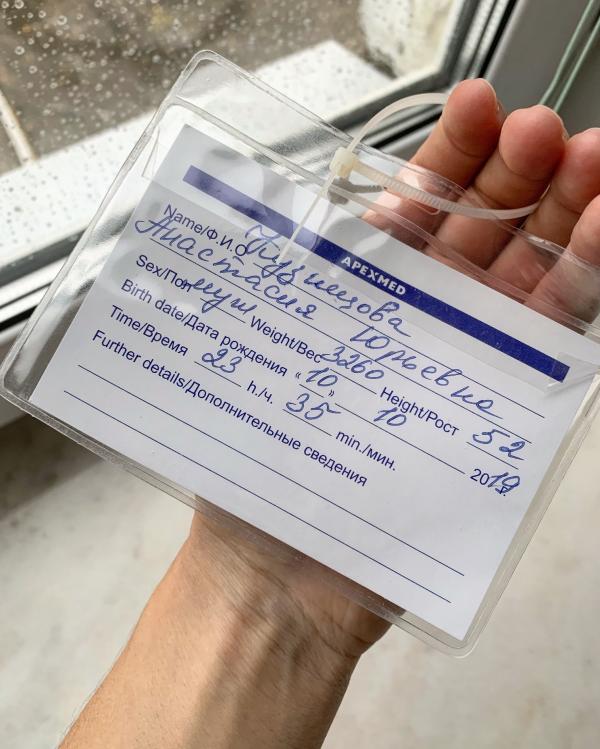 APEXMED
Name/Ф.И.О Кузнецова
Анастасия Юрьевна
Sex/Пол муж Weight/Вес 3260 Height/Рост 52
Birth date/Дата рождения « 10 » 10 2019 г.
Time/Время 23 h./ч. 35 min./мин.
Further details/Дополнительные сведения